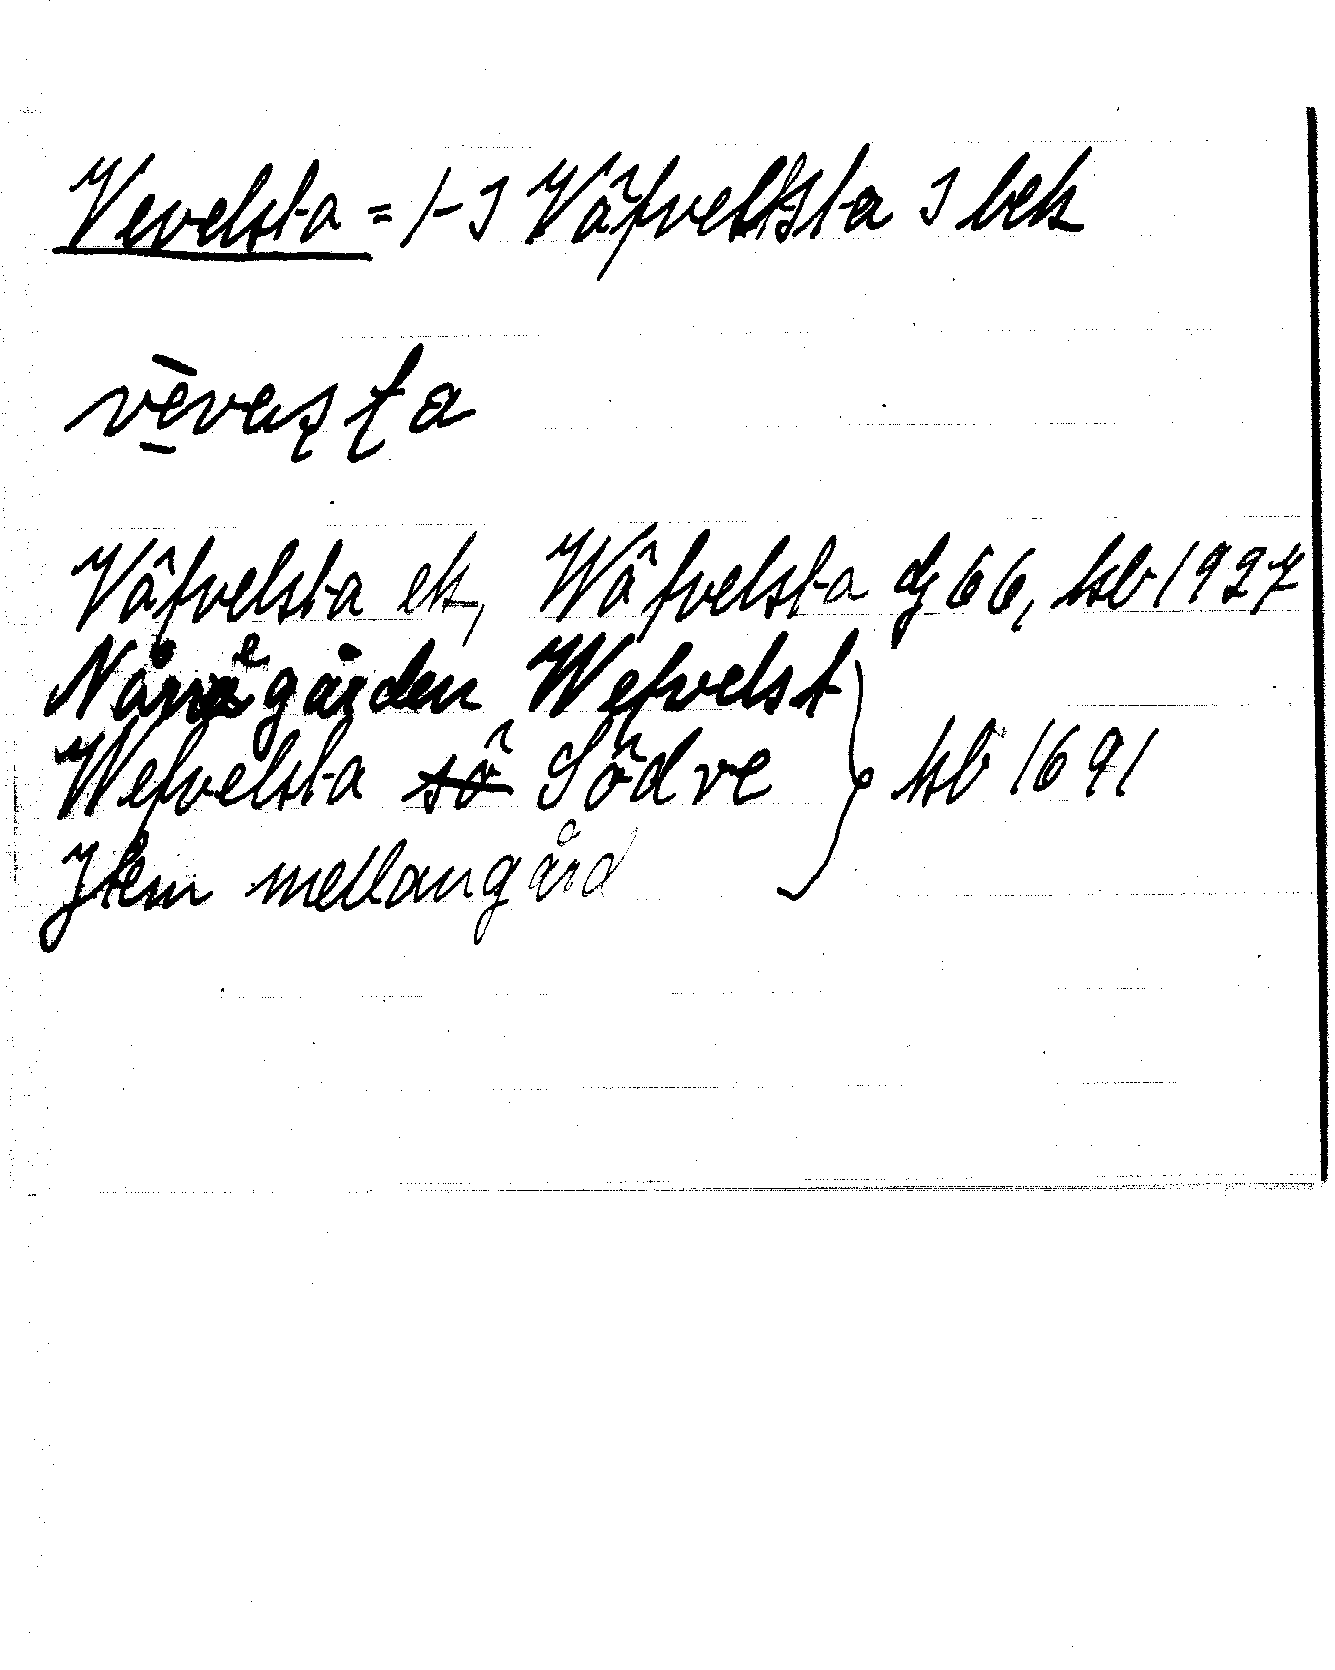 Vevelsta = 1-3 Väfvelsta 3 bek
vēvaʂʈa
Väfvelsta ek, Wäfvelsta dj 66, kb 1927
Norregården Wefvelst
Wefvelsta sö Södre } kb 1691
Item mellangård